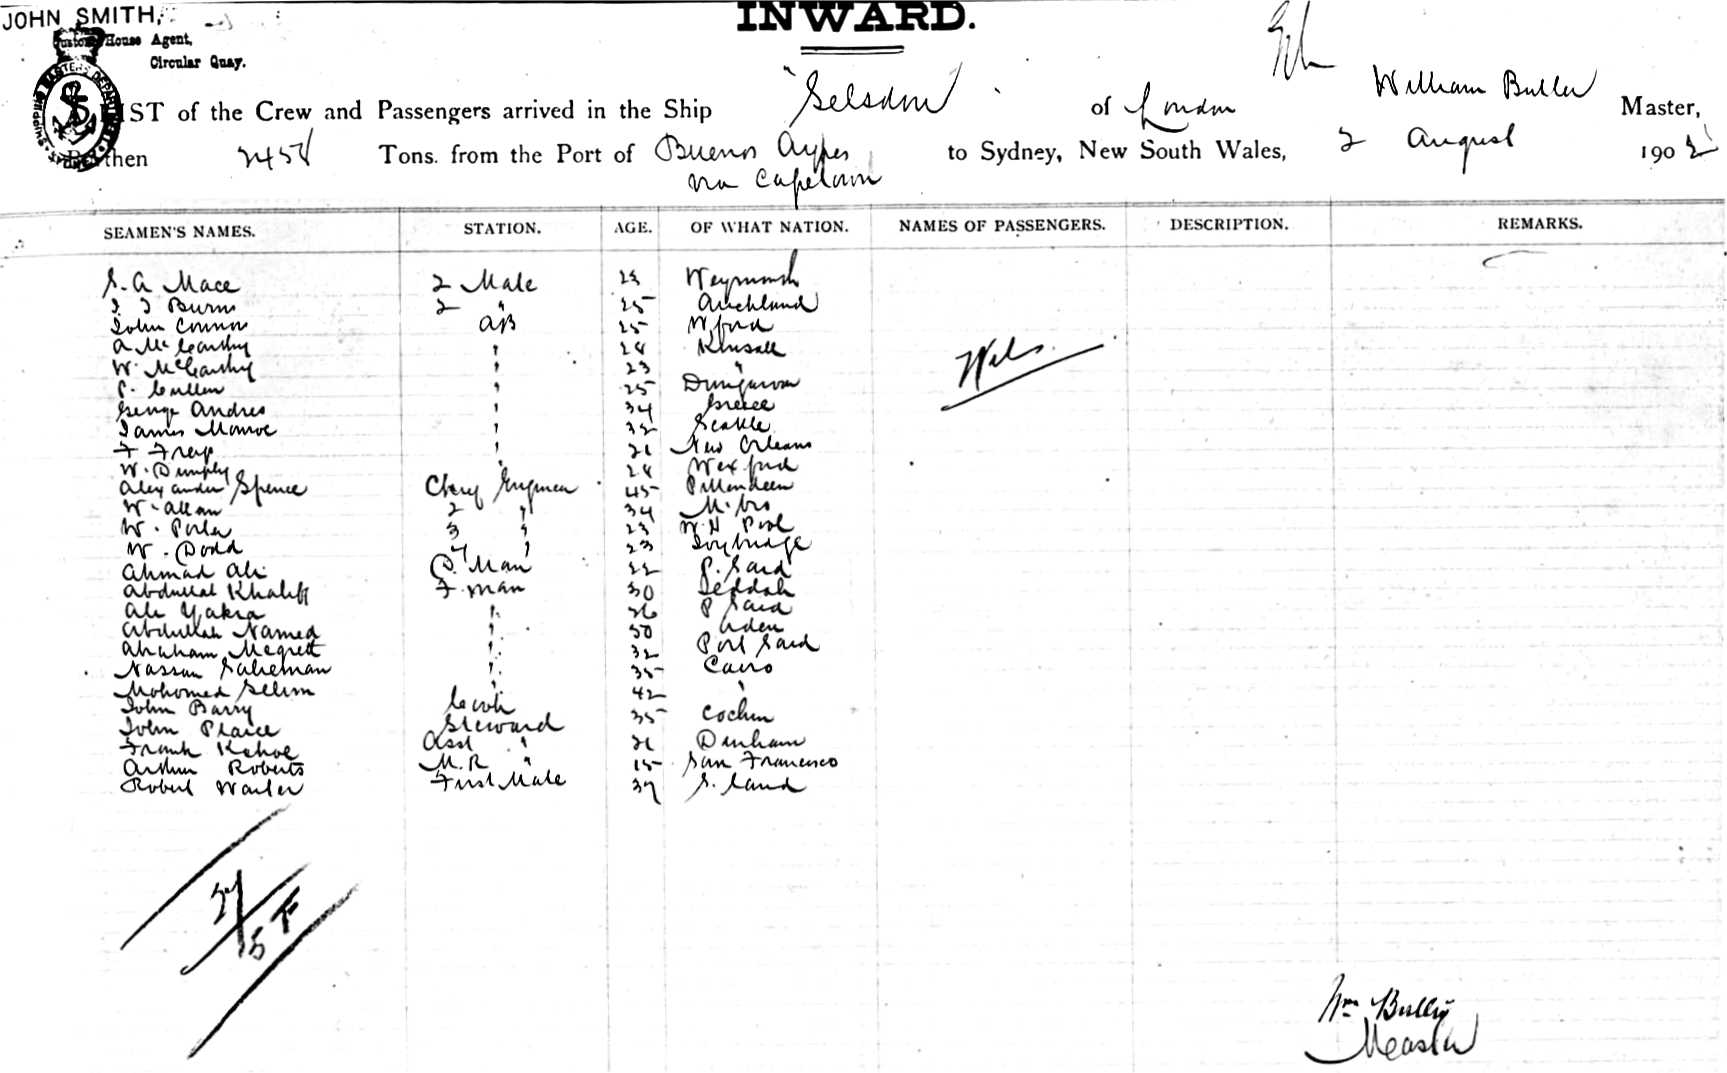 JOHN SMITH,
Custom House Agent,
Circular Quay.
INWARD.
SHIPPING MASTER'S DEPARTMENT
LIST of the Crew and Passengers arrived in the Ship "Selsdon" of London William Butler Master,
Burthen 2458 Tons. from the Port of Buenos Ayres to Sydney, New South Wales, 2 August 1902
via Capetown
SEAMEN'S NAMES. STATION. AGE. OF WHAT NATION. NAMES OF PASSENGERS. DESCRIPTION. REMARKS.
S. A Mace 2 Mate 23 Weymouth
Burns 2 " 25 Auckland
John Connor AB 25 W.ford
A McCarthy " 28 Kinsale
W. McCarthy " 23 "
P. Cullen " 25 Dungarvan
George Andres " 34 Greece
James Monroe " 32 Seattle
F Frey " 21 New Orleans
W. Dumply " 28 Wexford
Alexander Spence Chief Engineer 45
W. Allan 2 " 34 M.bro
W. Porter 3 " 23 W. H Pool
W. Dodd 4 " 23
Ahmad Ali D. Man 22 P. Said
Abdullah Khaliff F. man 30 Jeddah
Ali Yakra " 26 P Said
Abdullah Named " 30 Aden
Abraham Megrett " 32 Port Said
Nassan Salieman " 35 Cairo
Mohomed Selim " 42 "
John Barry Cook 35 Cochin
John Plaice Steward
Frank Kehoe Asst " 21 Durham
Arthur Roberts M. R " 15 San Francisco
Robert Walter First Mate 37 S. land
Nil
27/5 F
Wm Butler
Master